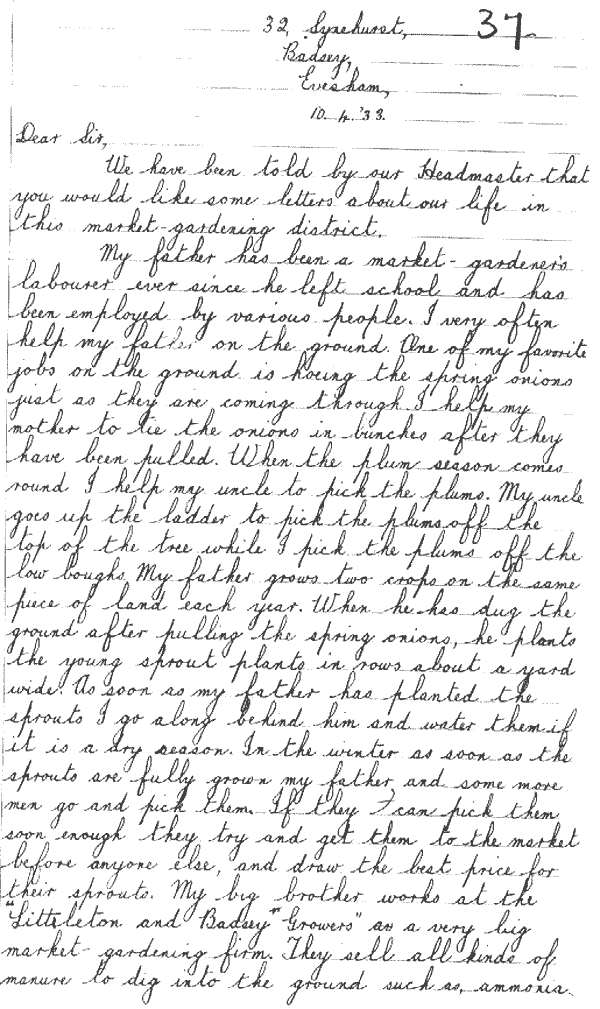 32, Synehurst, 37.
Badsey,
Evesham,
10. 4. '33.
Dear Sir,
We have been told by our Headmaster that
you would like some letters about our life in
this market-gardening district.
My father has been a market-gardener's
labourer ever since he left school, and has
been employed by various people. I very often
help my father on the ground. One of my favorite
jobs on the ground is hoeing the spring onions
just as they are coming through. I help my
mother to tie the onions in bunches after they
have been pulled. When the plum season comes
round I help my uncle to pick the plums. My uncle
goes up the ladder to pick the plums off the
top of the tree while I pick the plums off the
low boughs. My father grows two crops on the same
piece of land each year. When he has dug the
ground after pulling the spring onions, he plants
the young sprout plants in rows about a yard
wide. As soon as my father has planted the
sprouts I go along behind him and water them if
it is a dry season. In the winter as soon as the
sprouts are fully grown my father, and some more
men go and pick them. If they can pick them
soon enough they try and get them to the market
before anyone else, and draw the best price for
their sprouts. My big brother works at the
"Littleton and Badsey" Growers" as a very big
market-gardening firm. They sell all kinds of
manure to dig into the ground such as, ammonia